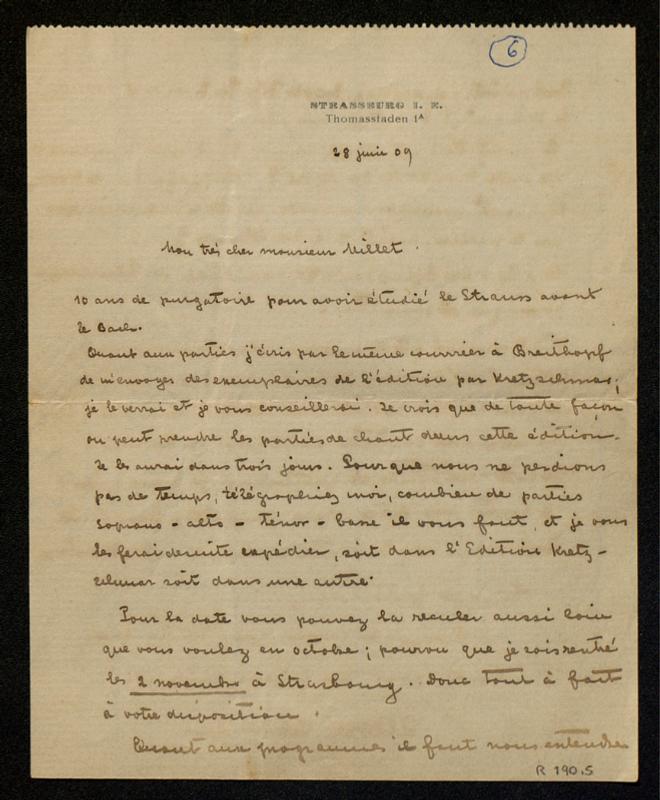 6
STRASSBURG I. E.
Thomasstaden 1A
28 juin 09
Mon très cher monsieur Millet.
10 ans de purgatoire pour avoir étudié le Strauss avant
le Bach.
Quant aux parties j'écris par le même courrier à Breitkopf
de m'envoyer des exemplaires de l'édition par Kretzschmar;
je le verrai et je vous conseillerai. Je crois que de toute façon
on peut prendre les parties de chant dans cette édition.
Je les aurai dans trois jours. Pour que nous ne perdions
pas de temps, télégraphiez moi, combien de parties
Soprano - alto - ténor - basse il vous faut, et je vous
les ferai de suite expédier, soit dans l'Edition Kretz-
schmar soit dans une autre.
Pour la date vous pouvez la reculer aussi loin
que vous voulez en octobre; pourvu que je sois rentré
les 2 novembre à Strasbourg. Donc tout à fait
à votre disposition.
Quant aux programmes il faut nous entendre
R 190.5